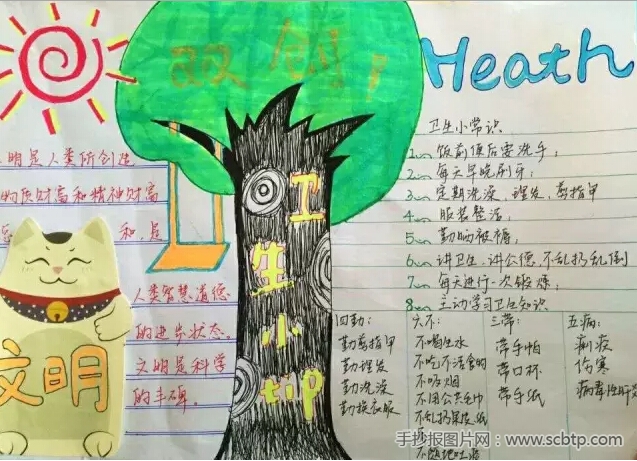 双创
Heath
卫生小tip
文明
明是人类所创造
物质财富和精神财富
和，是
人类智慧道德
的进步状态。
文明是科学
的丰碑。
卫生小常识
1、饭前便后要洗手；
2、每天早晚刷牙；
3、定期洗澡、理发、剪指甲
4、服装整洁；
5、勤晒被褥；
6、讲卫生、讲公德、不乱扔乱倒
7、每天进行一次锻炼；
8、主动学习卫生知识
四勤：
勤剪指甲
勤理发
勤洗澡
勤换衣服
六不：
不喝生水
不吃不洁食的
不吸烟
不用公共毛巾
不乱扔果皮纸
不随地吐痰
三带：
带手帕
带口杯
带手纸
五病：
痢疾
伤寒
病毒性肝炎
手抄报图片网：www.scbtp.com